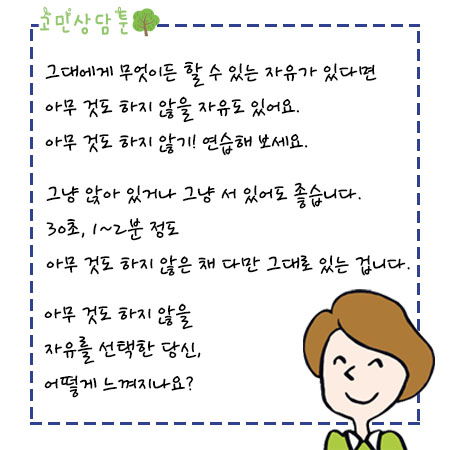 고민상담툰
그대에게 무엇이든 할 수 있는 자유가 있다면
아무 것도 하지 않을 자유도 있어요.
아무 것도 하지 않기! 연습해 보세요.
그냥 앉아 있거나 그냥 서 있어도 좋습니다.
30초, 1~2분 정도
아무 것도 하지 않은 채 다만 그대로 있는 겁니다.
아무 것도 하지 않을
자유를 선택한 당신,
어떻게 느껴지나요?